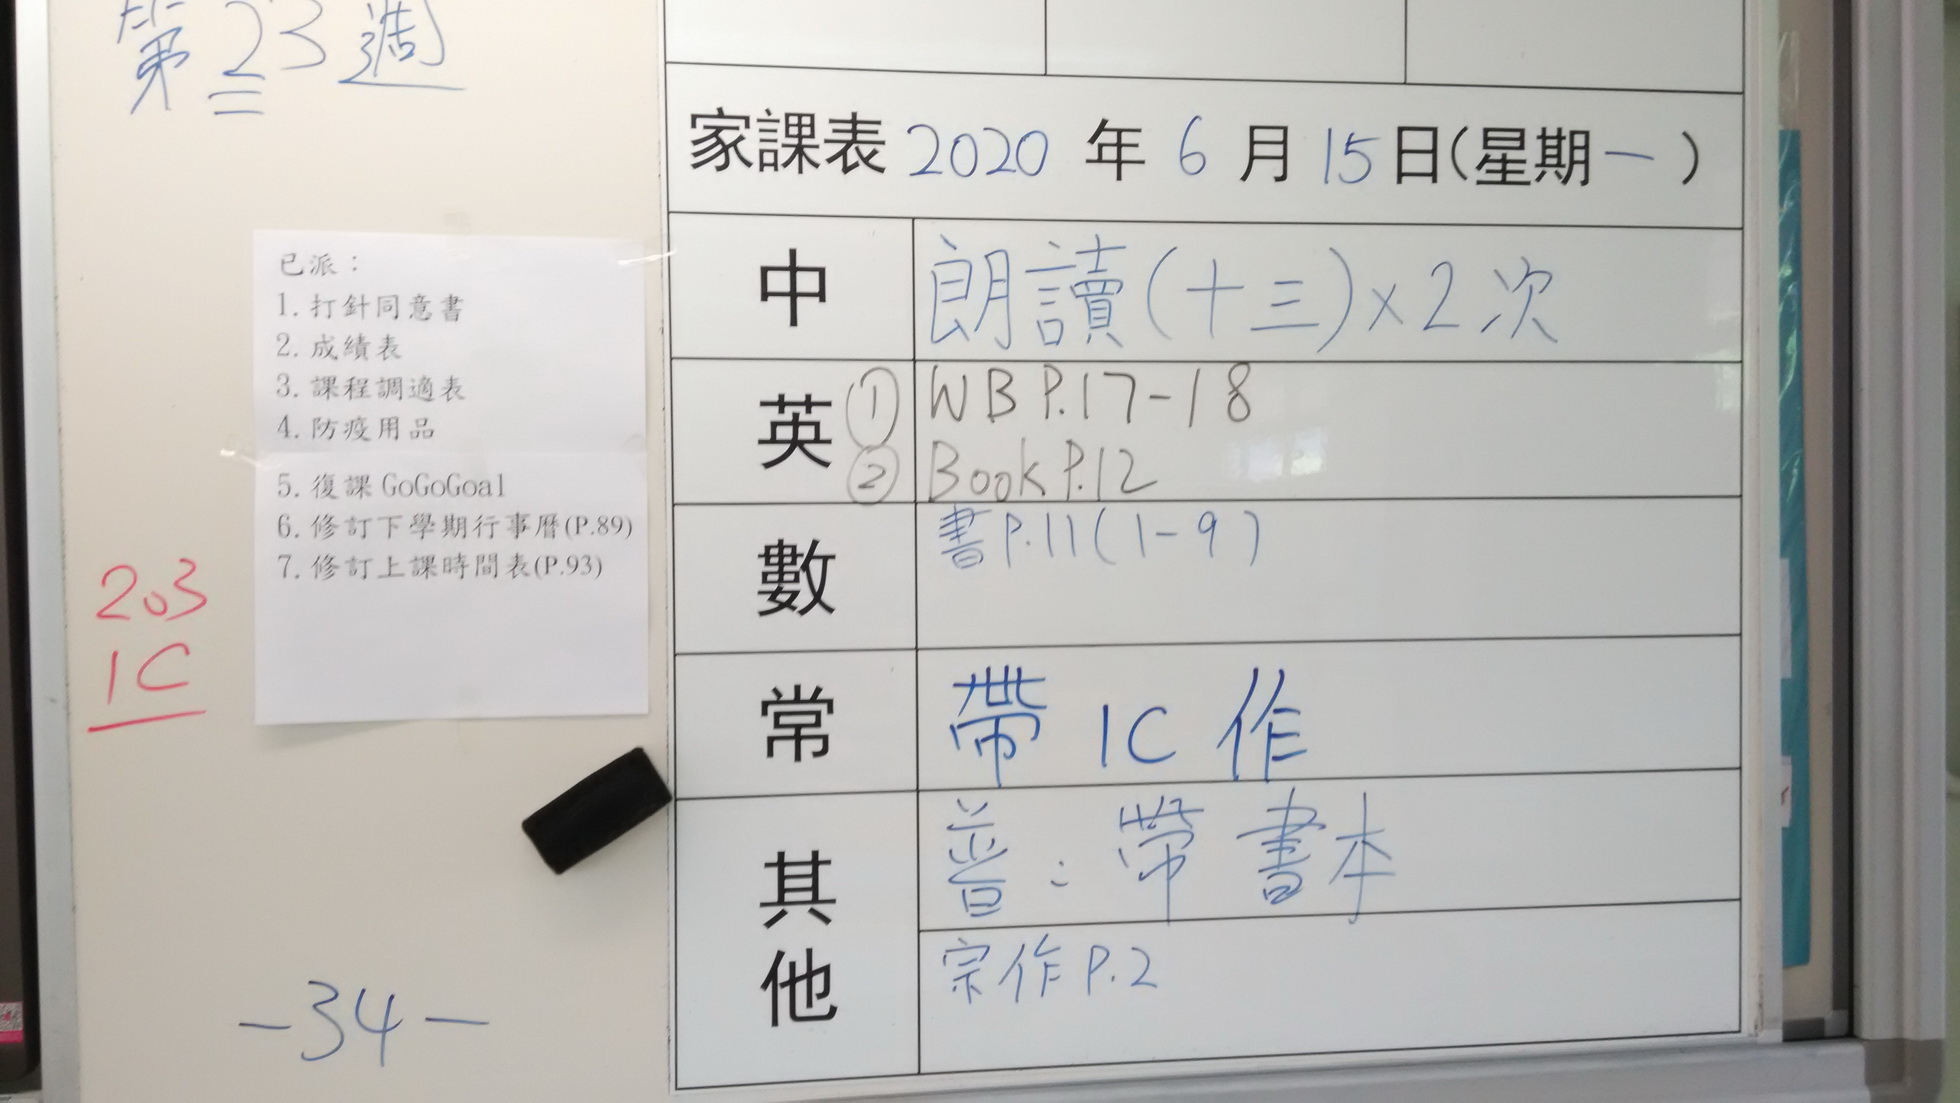 第23週
家課表 2020 年 6 月 15 日(星期一)
已派：
1. 打針同意書
2. 成績表
3. 課程調適表
4. 防疫用品
5. 復課 GoGoGoal
6. 修訂下學期行事曆(P.89)
7. 修訂上課時間表(P.93)
203
1C
-34-
中 朗讀(十三)×2次
英 ① WB P.17-18
② Book P.12
數 書P.11(1-9)
常 帶 1C 作
其他 普：帶書本
宗作P.2